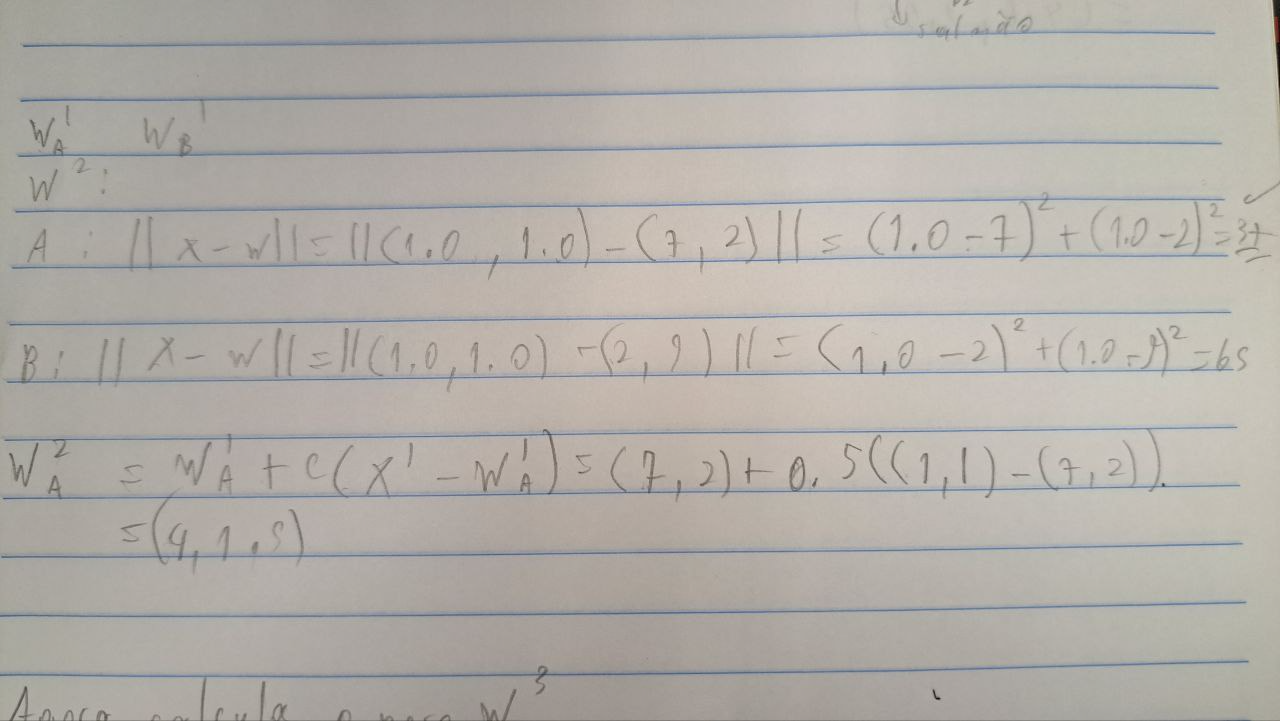 W_A^1 W_B^1
W^2:
A: ||x-w||=||(1.0, 1.0)-(7, 2)||=(1.0-7)^2+(1.0-2)^2=37
B: ||x-w||=||(1.0, 1.0)-(2, 9)||=(1,0-2)^2+(1.0-9)^2=65
W_A^2 = W_A^1+c(x^1-W_A^1)=(7, 2)+0.5((1,1)-(7,2)).
=(4, 1.5)
calcula o W^3